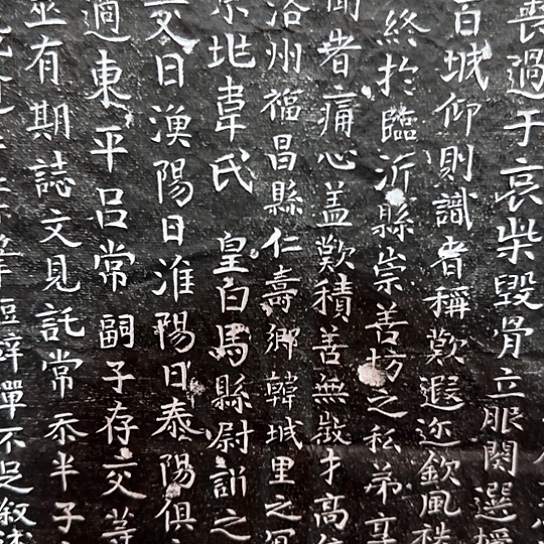 喪過于哀柴毀骨立服闋選
百城仰則識者稱歎遐迩欽風
終於臨沂縣崇善坊之私苐享
者痛心盖歎積善無徵才高
洛州福昌縣仁壽鄉韓城里之
京兆韋氏皇白馬縣尉訢之
日漁陽日淮陽日泰陽俱
適東平吕常嗣子存交等
並有期誌文見託常忝半子
短辞殫不足叙